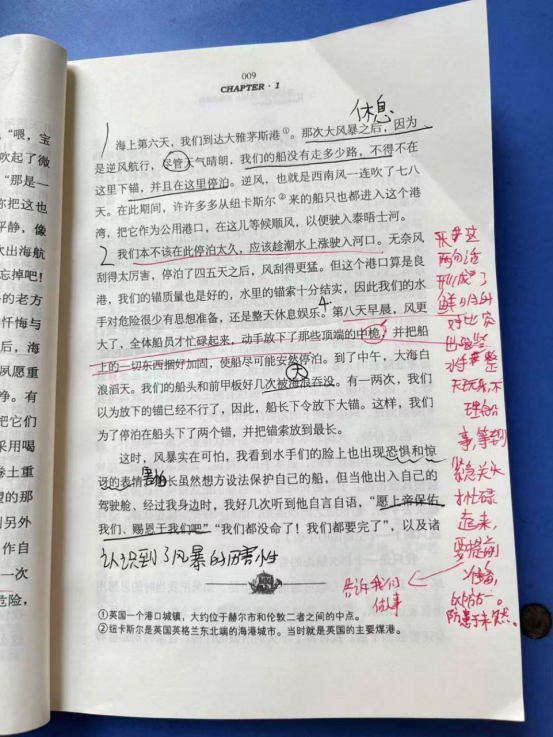 009
CHAPTER · 1
休息
1 海上第六天，我们到达大雅茅斯港①。那次大风暴之后，因为
是逆风航行，尽管天气晴朗，我们的船没有走多少路，不得不在
这里下锚，并且在这里停泊。逆风，也就是西南风一连吹了七八
天。在此期间，许许多多从纽卡斯尔②来的船只也都进入这个港
湾，把它作为公用港口，在这儿等候顺风，以便驶入泰晤士河。
2 我们本不该在此停泊太久，应该趁潮水上涨驶入河口。无奈风
刮得太厉害，停泊了四五天之后，风刮得更猛。但这个港口算是良
港，我们的锚质量也是好的，水里的锚索十分结实，因此我们的水
手对危险很少有思想准备，还是整天休息娱乐。第八天早晨，风更
大了，全体船员才忙碌起来，动手放下了那些顶端的中桅，并把船
上的一切东西捆好加固，使船尽可能安然停泊。到了中午，大海白
浪滔天。我们的船头和前甲板好几次被海浪吞没。有一两次，我们
以为放下的锚已经不行了，因此，船长下令放下大锚。这样，我们
为了停泊在船头下了两个锚，并把锚索放到最长。
这时，风暴实在可怕，我看到水手们的脸上也出现恐惧和惊
讶的表情 害怕 长虽然想方设法保护自己的船，但当他出入自己的
驾驶舱、经过我身边时，我好几次听到他自言自语，“愿上帝保佑
我们、赐恩于我们吧”“我们都没命了！我们都要完了”，以及诸
认识到了风暴的厉害性
①英国一个港口城镇，大约位于赫尔市和伦敦二者之间的中点。
②纽卡斯尔是英国英格兰东北端的海港城市。当时就是英国的主要煤港。
4.
天
这
两句话
形成了
鲜明的
对比
水手 整
天玩
理船
事，等到
紧急关头
才忙碌
起来，
要提前
准备，
防患于未然。
告诉我们
做事
“喂，宝
吹起了微
“那是一
你把这也
平静，像
欠出海航
忘掉吧！
的老方
忏悔与
后，海
夙愿重
净。有
把它们
采用喝
卷土重
望的那
到另外
作自
一次
危险，